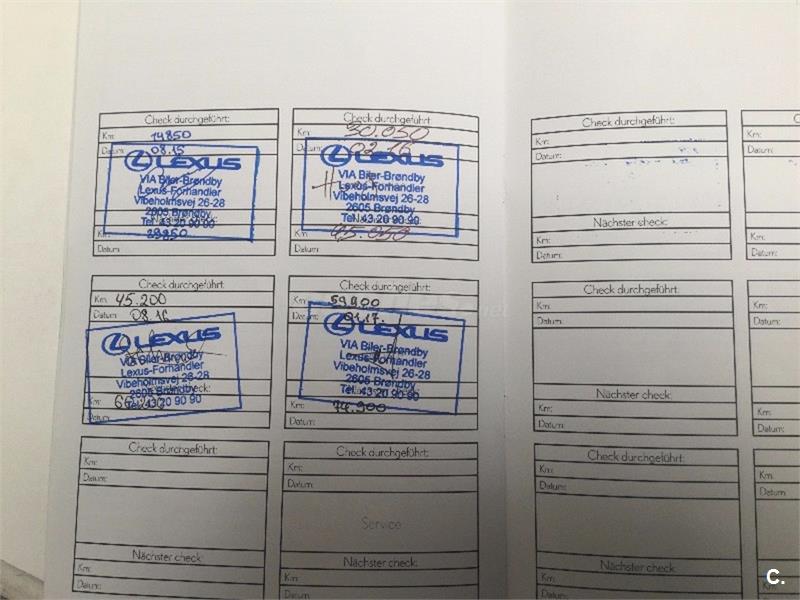 Check durchgeführt:
Km: 14850
Datum: 08.15
LEXUS
VIA Biler-Brøndby
Lexus-Forhandler
Vibeholmsvej 26-28
2605 Brøndby
Tel. 43 20 90 90
Km: 29850
Datum:
Check durchgeführt:
Km: 30.050
Datum: 02.16
LEXUS
VIA Biler-Brøndby
Lexus-Forhandler
Vibeholmsvej 26-28
2605 Brøndby
Tel. 43 20 90 90
Km: 45.050
Datum:
Check durchgeführt:
Km: 45.200
Datum: 08.16
LEXUS
VIA Biler-Brøndby
Lexus-Forhandler
Vibeholmsvej 26-28
2605 Brøndby
Tel. 43 20 90 90
Km:
Datum:
Check durchgeführt:
Km: 59900
Datum: 01.17.
LEXUS
VIA Biler-Brøndby
Lexus-Forhandler
Vibeholmsvej 26-28
2605 Brøndby
Tel. 43 20 90 90
Km: 74.900
Datum:
Check durchgeführt:
Km:
Datum:
Nächster check:
Km:
Datum:
Check durchgeführt:
Km:
Datum:
Service
Nächster check:
Km:
Datum:
Check durchgeführt:
Km:
Datum:
Nächster check:
Km:
Datum:
Km:
Datum:
Km:
Datum:
Check durchgeführt:
Km:
Datum:
Nächster check:
Km:
Datum:
Km:
Datum:
Km:
Datum:
Check durchgeführt:
Km:
Datum:
Nächster check:
Km:
Km:
Datum:
Km:
C.